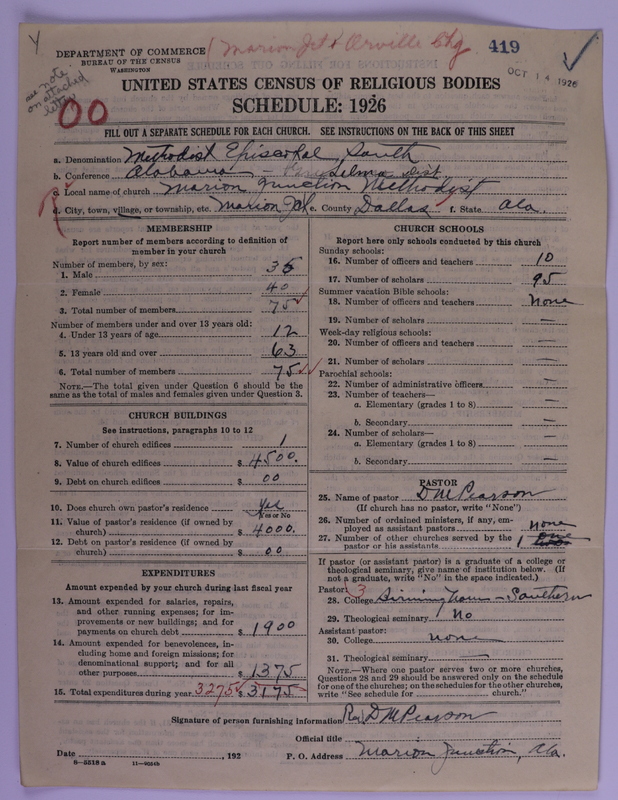 1 Marion Jct & Orville Chg
419
DEPARTMENT OF COMMERCE
BUREAU OF THE CENSUS
WASHINGTON
OCT 14 1926
see note on attached letter
00
UNITED STATES CENSUS OF RELIGIOUS BODIES
SCHEDULE: 1926
FILL OUT A SEPARATE SCHEDULE FOR EACH CHURCH. SEE INSTRUCTIONS ON THE BACK OF THIS SHEET
a. Denomination Methodist Episcopal, South
b. Conference Alabama - Selma Dist.
c. Local name of church Marion Junction Methodist
d. City, town, village, or township, etc. Marion Jct e. County Dallas f. State Ala.
MEMBERSHIP
Report number of members according to definition of
member in your church
Number of members, by sex:
1. Male 35
2. Female 40
3. Total number of members 75
Number of members under and over 13 years old:
4. Under 13 years of age 12
5. 13 years old and over 63
6. Total number of members 75
NOTE.—The total given under Question 6 should be the
same as the total of males and females given under Question 3.
CHURCH BUILDINGS
See instructions, paragraphs 10 to 12
7. Number of church edifices 1
8. Value of church edifices $ 4500.
9. Debt on church edifices $ 00
10. Does church own pastor's residence Yes
Yes or No
11. Value of pastor's residence (if owned by
church) $ 4000.
12. Debt on pastor's residence (if owned by
church) $ 00
EXPENDITURES
Amount expended by your church during last fiscal year
13. Amount expended for salaries, repairs,
and other running expenses; for im-
provements or new buildings; and for
payments on church debt $ 1900
14. Amount expended for benevolences, in-
cluding home and foreign missions; for
denominational support; and for all
other purposes $ 1375
15. Total expenditures during year 3275 $ 3175
CHURCH SCHOOLS
Report here only schools conducted by this church
Sunday schools:
16. Number of officers and teachers 10
17. Number of scholars 95
Summer vacation Bible schools:
18. Number of officers and teachers None
19. Number of scholars —
Week-day religious schools:
20. Number of officers and teachers —
21. Number of scholars —
Parochial schools:
22. Number of administrative officers —
23. Number of teachers—
a. Elementary (grades 1 to 8) —
b. Secondary —
24. Number of scholars—
a. Elementary (grades 1 to 8) —
b. Secondary —
PASTOR
25. Name of pastor D M Pearson
(If church has no pastor, write "None")
26. Number of ordained ministers, if any, em-
ployed as assistant pastors none
27. Number of other churches served by the
pastor or his assistants 1 one
If pastor (or assistant pastor) is a graduate of a college or
theological seminary, give name of institution below. (If
not a graduate, write "No" in the space indicated.)
Pastor: 3
28. College Birmingham - Southern
29. Theological seminary No
Assistant pastor:
30. College none
31. Theological seminary —
NOTE.—Where one pastor serves two or more churches,
Questions 28 and 29 should be answered only on the schedule
for one of the churches; on the schedules for the other churches,
write "See schedule for church."
Signature of person furnishing information Rev D M Pearson
Official title
Date , 192 P. O. Address Marion Junction, Ala.
8—5518a 11—9054b